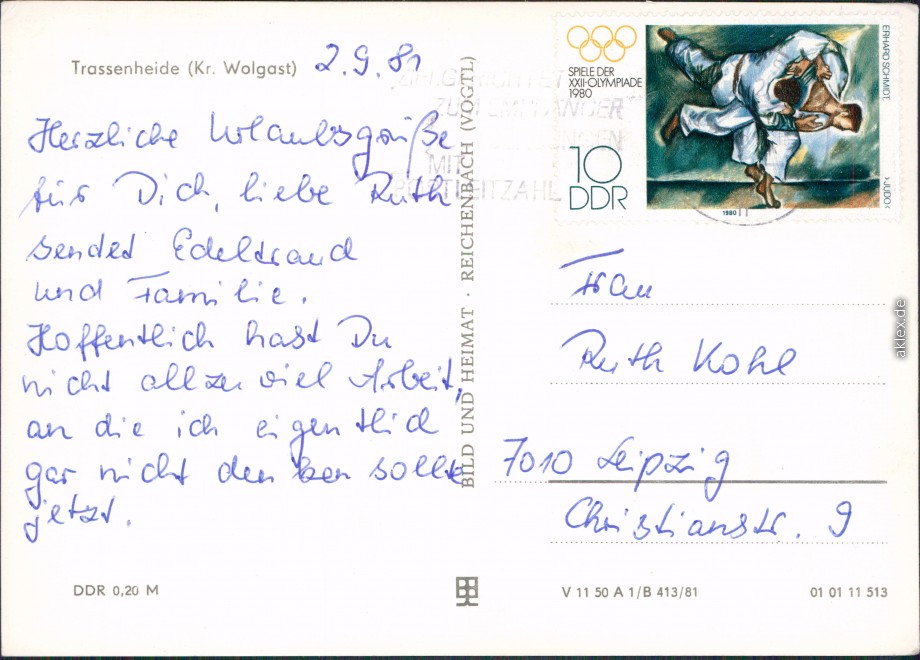 Trassenheide (Kr. Wolgast) 2.9.81
Herzliche Urlaubsgrüße
für Dich, liebe Ruth
sendet Edeltraud
und Familie.
Hoffentlich hast Du
nicht allzu viel Arbeit,
an die ich eigentlich
gar nicht denken sollte
jetzt.
DDR 0,20 M
BILD UND HEIMAT · REICHENBACH (VOGTL)
ZUM EMPFÄNGER
MIT
POSTLEITZAHL
SPIELE DER
XXII·OLYMPIADE
1980
10
DDR
ERHARD SCHMIDT,
›JUDO‹
1980
Frau
Ruth Kohl
7010 Leipzig
Christianstr. 9
V 11 50 A 1/B 413/81
01 01 11 513
aklex.de